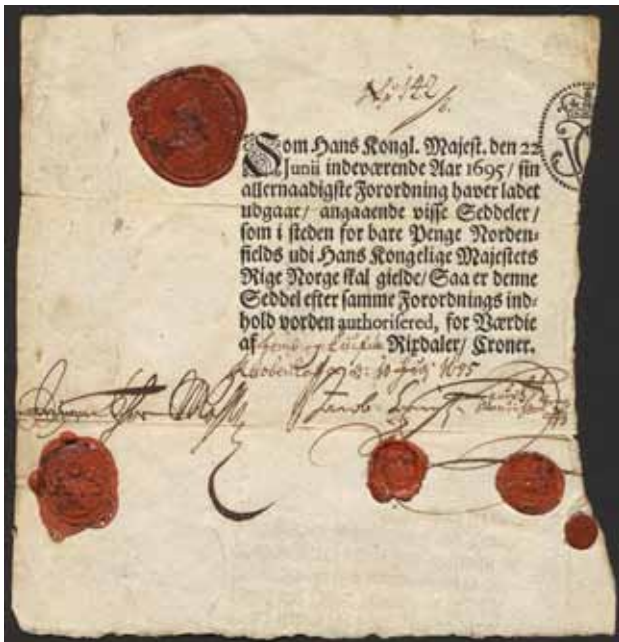 No 142
Som Hans Kongl. Majest. den 22
Junii indeværende Aar 1695/ sin
allernaadigste Forordning haver ladet
udgaar/ angaaende visse Seddeler/
som i steden for bare Penge Norden-
fields udi Hans Kongelige Majestets
Rige Norge skal gielde/ Saa er denne
Seddel efter samme Forordnings ind-
hold vorden authorisered, for Værdie
af Rixdaler/ Croner.
1695